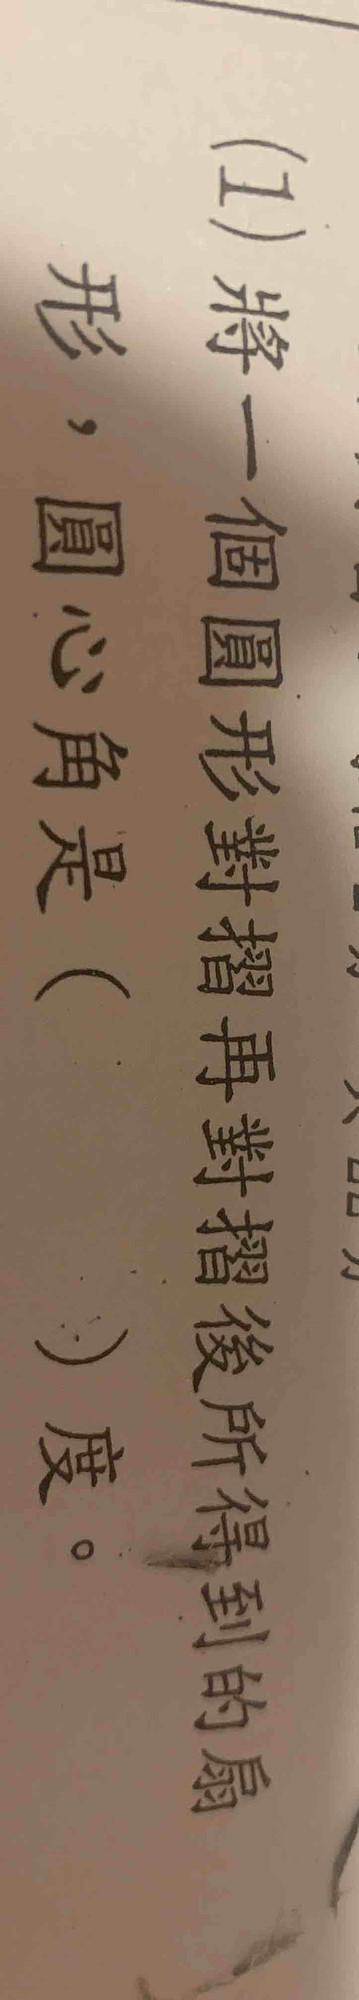 (1)將一個圓形對摺再對摺後所得到的扇
形，圓心角是(　　)度。